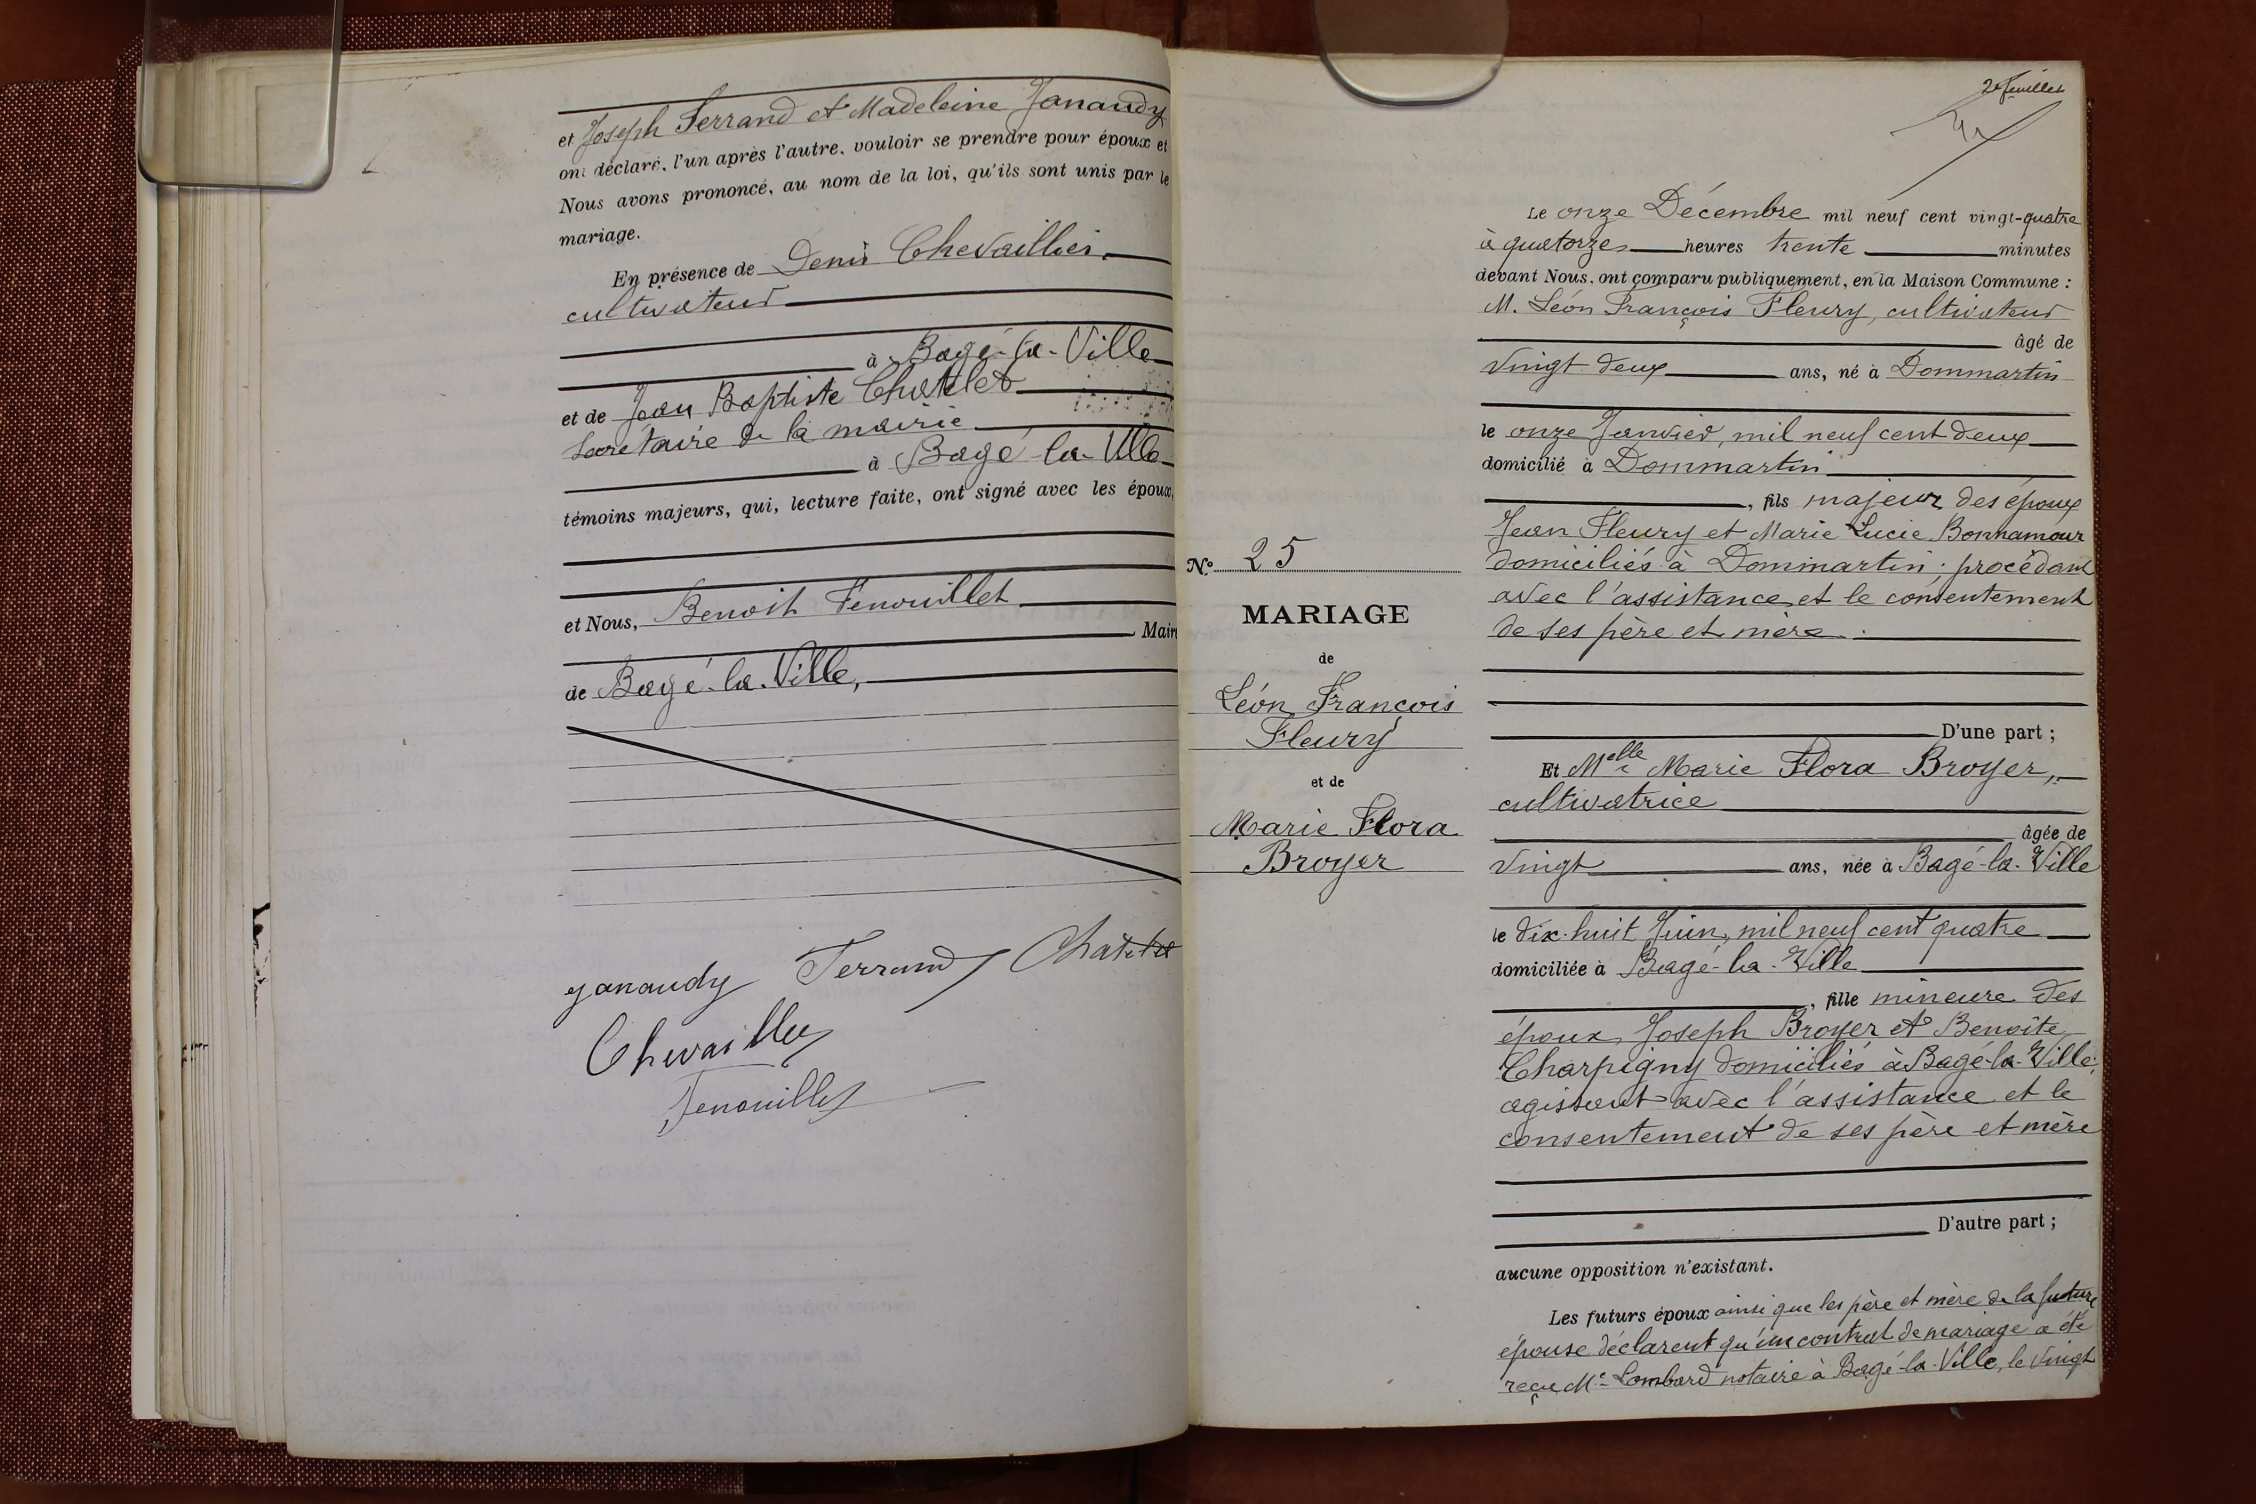 et Joseph Ferrand et Madeleine Janaudy
ont déclaré, l'un après l'autre, vouloir se prendre pour époux et
Nous avons prononcé, au nom de la loi, qu'ils sont unis par le
mariage.
En présence de Denis Chevaillier
cultivateur
à Bagé-la-Ville
et de Jean Baptiste Chatelet
Secrétaire de la mairie
à Bagé-la-Ville
témoins majeurs, qui, lecture faite, ont signé avec les époux,
et Nous, Benoit Fenouillet
Maire
de Bagé-la-Ville,
Janaudy Ferrand Chatelet
Chevaillier
Fenouillet
2e feuillet
N° 25
MARIAGE
de
Léon François
Fleury
et de
Marie Flora
Broyer
Le onze Décembre mil neuf cent vingt-quatre
à quatorze heures trente minutes
devant Nous, ont comparu publiquement, en la Maison Commune :
M. Léon François Fleury, cultivateur
âgé de
vingt deux ans, né à Dommartin
le onze Janvier, mil neuf cent deux
domicilié à Dommartin
, fils majeur des époux
Jean Fleury et Marie Lucie Bonnamour
domiciliés à Dommartin ; procédant
avec l'assistance et le consentement
de ses père et mère.
D'une part ;
Et Melle Marie Flora Broyer,
cultivatrice
âgée de
vingt ans, née à Bagé-la-Ville
le dix-huit Juin, mil neuf cent quatre
domiciliée à Bagé-la-Ville
, fille mineure des
époux Joseph Broyer et Benoîte
Charpigny domiciliés à Bagé-la-Ville;
agissant avec l'assistance et le
consentement de ses père et mère
D'autre part ;
aucune opposition n'existant.
Les futurs époux ainsi que les père et mère de la future
épouse déclarent qu'un contrat de mariage a été
reçu Me Lombard notaire à Bagé-la-Ville, le vingt